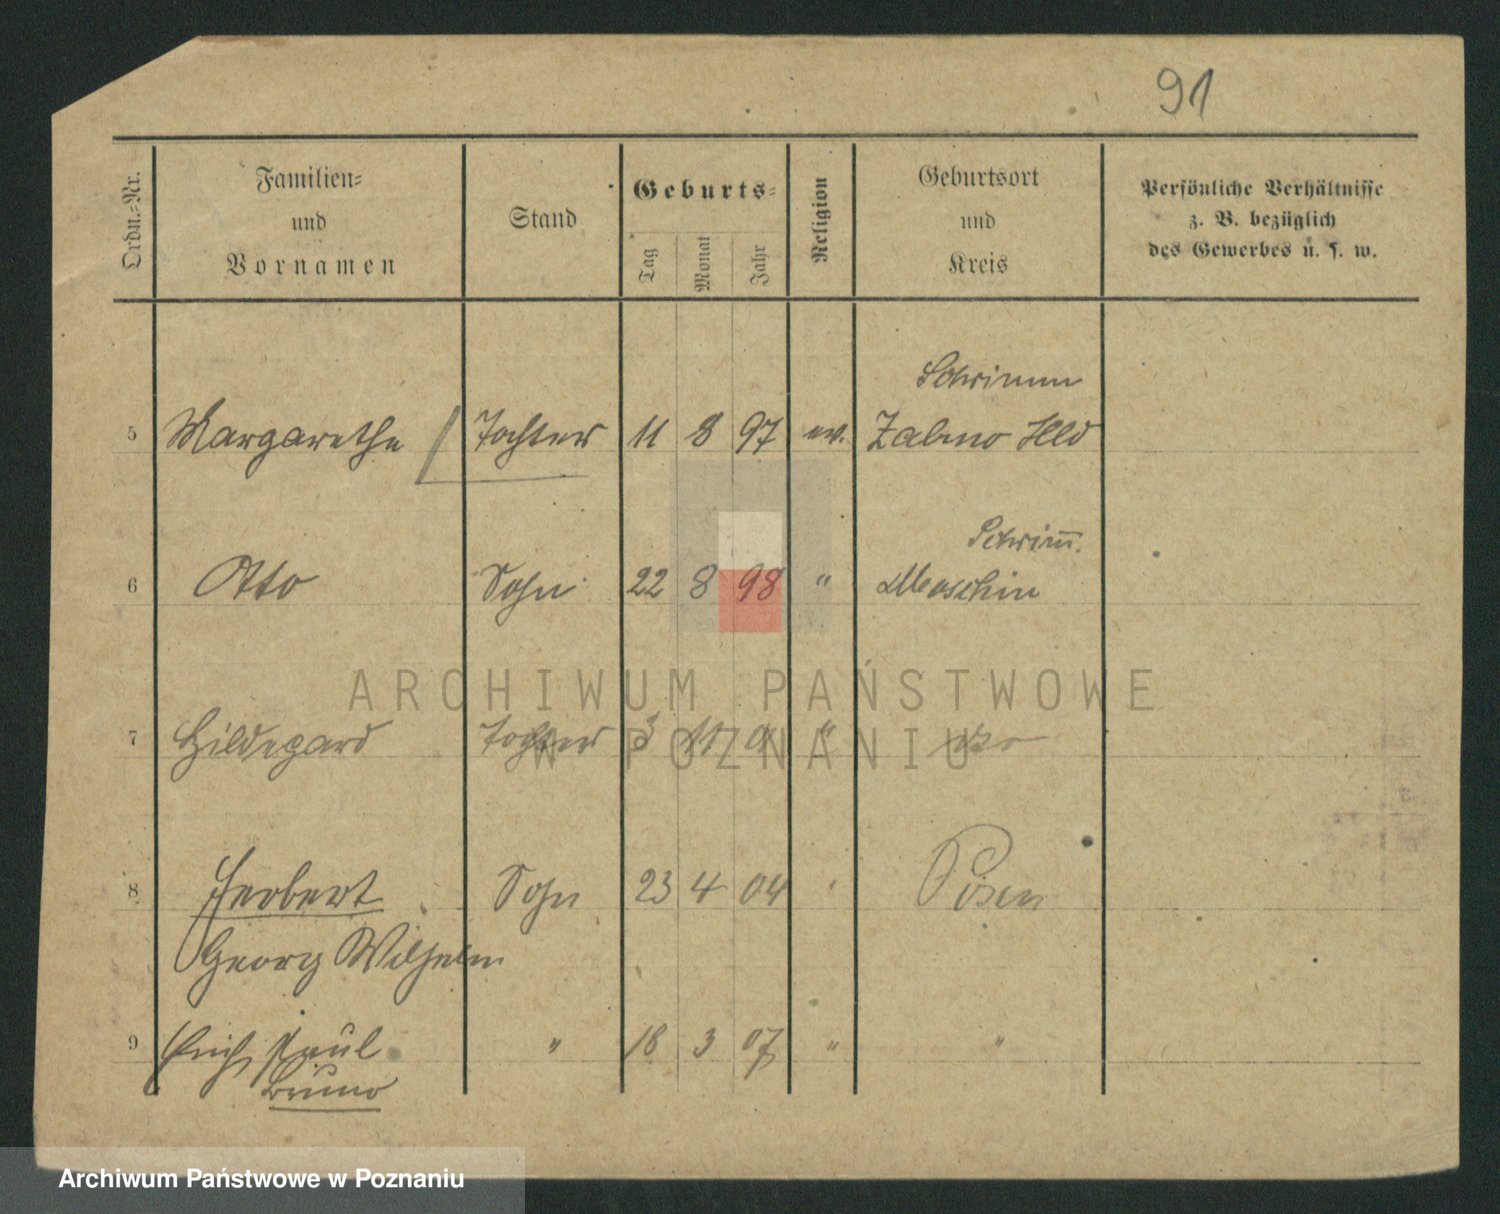 91
Ordn.-Nr.
Familien-
und
Vornamen
Stand
Geburts-
Tag
Monat
Jahr
Religion
Geburtsort
und
Kreis
Persönliche Verhältnisse
z. B. bezüglich
des Gewerbes u. s. w.
Schrimm
5 Margarethe Tochter 11 8 97 ev. Zabno
Schrimm.
6 Otto Sohn 22 8 98 " Moschin
ARCHIWUM PAŃSTWOWE
W POZNANIU
7 Hildegard Tochter 3 11 "
8 Herbert Sohn 23 4 04 Posen
Georg Wilhelm
9 Erich Paul " 18 3 07 " "
Bruno
Archiwum Państwowe w Poznaniu